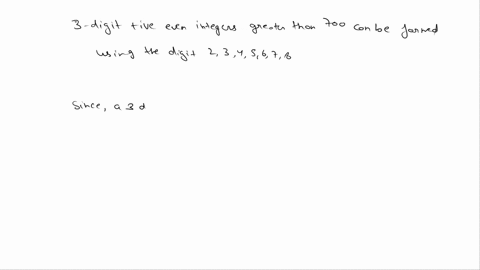 3-digit +ive even integers greater than 700 can be formed
using the digit 2, 3, 4, 5, 6, 7, 8
Since, a 3 d